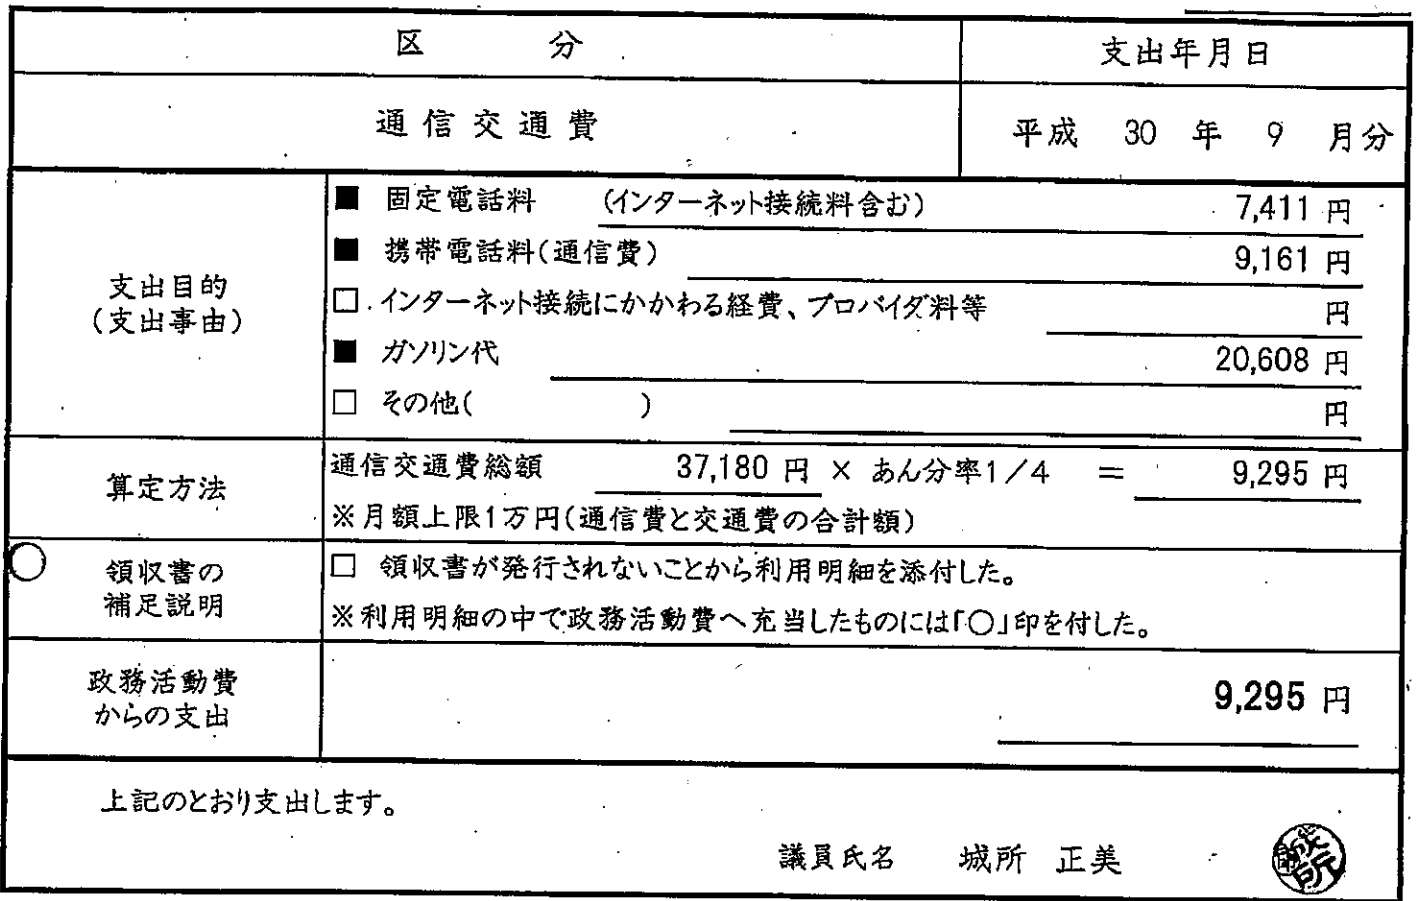 区　分
支出年月日
通信交通費
平成 30 年 9 月分
支出目的
(支出事由)
■ 固定電話料 (インターネット接続料含む) 7,411 円
■ 携帯電話料(通信費) 9,161 円
□ インターネット接続にかかわる経費、プロバイダ料等 円
■ ガソリン代 20,608 円
□ その他( ) 円
算定方法
通信交通費総額 37,180 円 × あん分率1/4 = 9,295 円
※月額上限1万円(通信費と交通費の合計額)
領収書の
補足説明
□ 領収書が発行されないことから利用明細を添付した。
※利用明細の中で政務活動費へ充当したものには「○」印を付した。
政務活動費
からの支出
9,295 円
上記のとおり支出します。
議員氏名 城所 正美